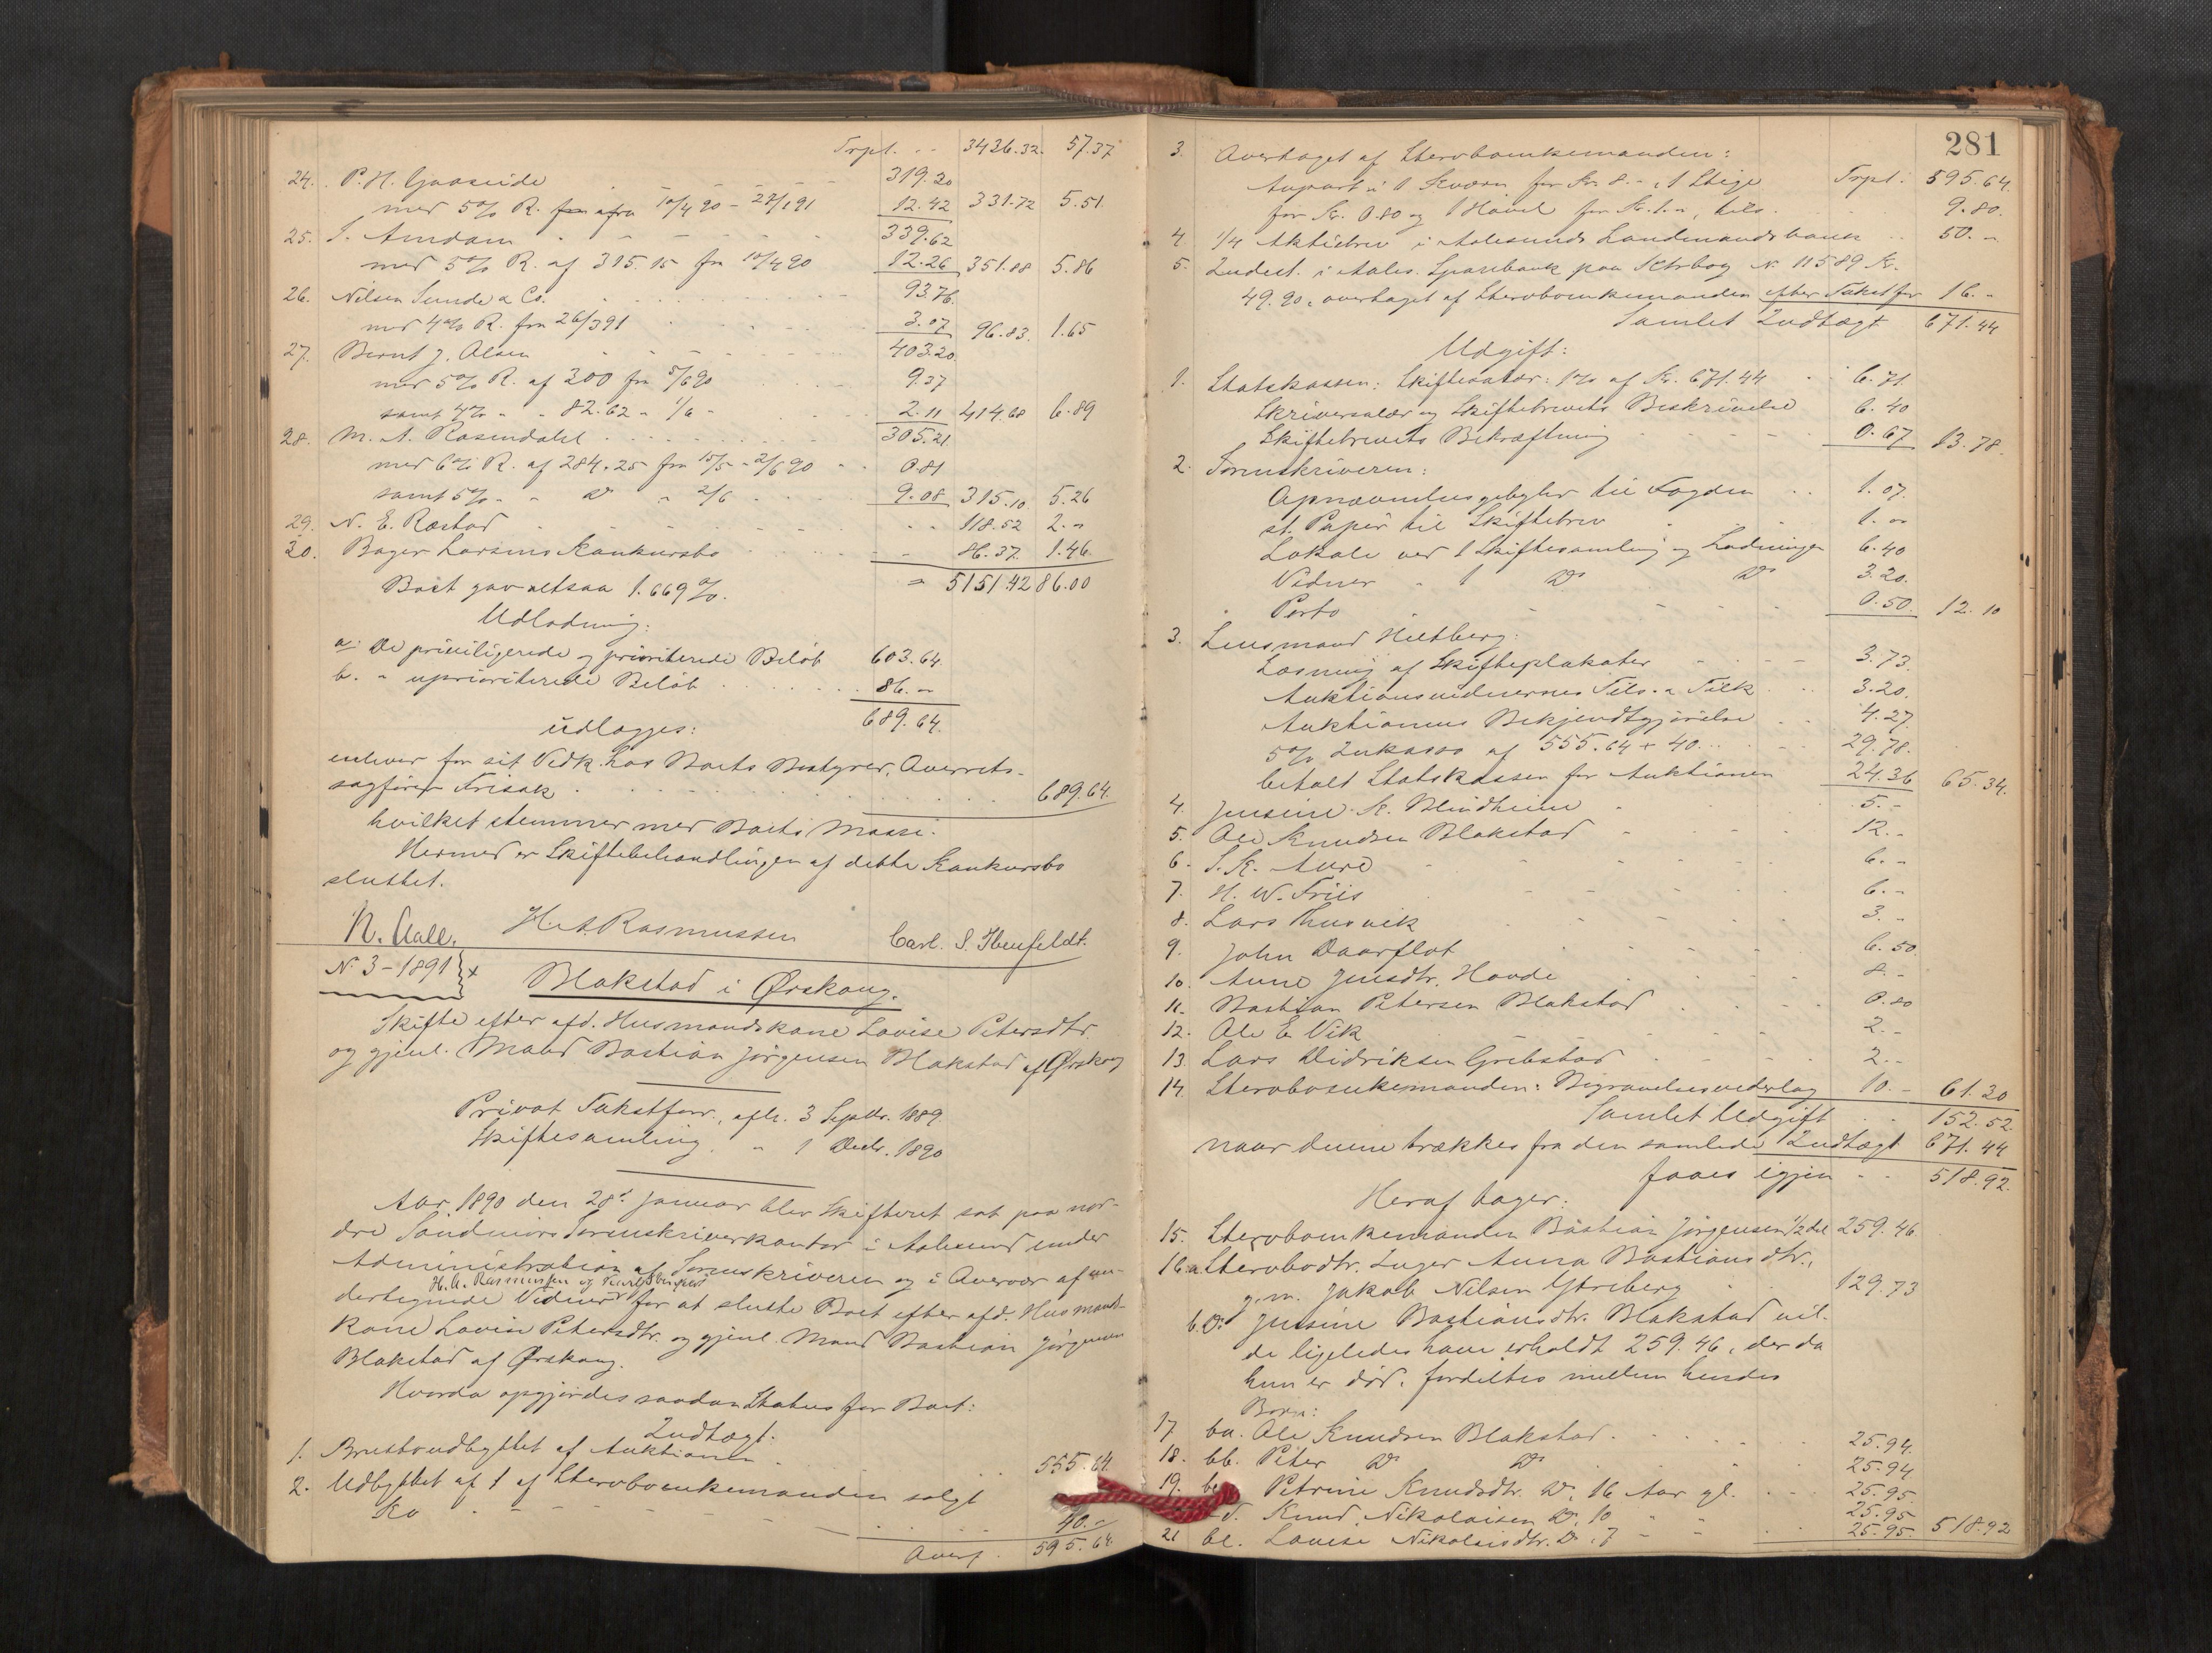 Trpt. .. 3436.32. 57.37
24. P. H. Gaaseide 319.20
med 5% R. fra 10/4 90 – 27/1 91 12.42 331.72 5.51
25. S. Amdam 339.62
med 5% R. af 315.15 fra 10/4 90 12.26 351.88 5.86
26. Nilsen Sunde & Co. 93.76.
med 4% R. fra 26/3 91 3.07 96.83. 1.65
27. Bernt J. Olsen 403.20
med 5% R. af 300 fra 5/6 90 9.37
samt 4% " " 82.62 " 1/6 " 2.11 414.68 6.89
28. M. A. Rosendahl 305.21
med 6% R. af 284.25 fra 15/5 – 2/6 90 0.81
samt 5% " " Do " 2/6 9.08 315.10 5.26
29. N. E. Ræstad 118.52 2.-
30. Bager Larsens Konkursbo 86.37. 1.46
Boet gav altsaa 1.669%. = 5151.42 86.00
Udlodning:
a: De priviligerede og prioriterede Beløb 603.64.
b. " uprioriterede Beløb 86.-
689.64.
udlægges:
enhver for sit Vedk. hos Boets Bestyrer, Overrets-
sagfører Frisak 689.64.
hvilket stemmer med Boets Masse.
Hermed er Skiftebehandlingen af dette Konkursbo
sluttet.
N. Aall. H. A. Rasmussen Carl. S. Ibenfeldt.
N. 3 – 1891 +
Blakstad i Ørskoug.
Skifte efter afd. Husmandskone Lovise Petersdtr.
og gjenl. Mand Bastian Jørgensen Blakstad af Ørskoug
Privat Takstforr., afh. 3 Septbr. 1889.
Skiftesamling. " 1 Decbr. 1890
Aar 1890 den 28d Januar blev Skifteret sat paa nor-
dre Søndmørs Sorenskriverkontor i Aalesund under
Administration af Sorenskriveren og i Overvær af un-
H. A. Rasmussen og
dertegnede Vidner for at slutte Boet efter afd. Husmands-
kone Lovise Petersdtr. og gjenl. Mand Bastian Jørgensen
Blakstad af Ørskoug.
Hvorda opgjordes saadan Status for Boet:
Indtægt.
1. Bruttoudbyttet af Auktionen 555.64
2. Udbyttet af 1 af Stervboenkemanden solgt
Ko 40.-
Overf. 595.64.
281
3. Overtaget af Stervboenkemanden: Trpt. 595.64.
Anpart i 1 Kværn for Kr 8.-, 1 Stige
for Kr. 0.80 og 1 Høvel for Kr. 1.-, tils. 9.80.
4. 1/4 Aktiebrev i Aalesunds Landmandsbank 50.-
5. Indest. i Aales. Sparebank paa Ktrbog N. 11589 Kr.
49.90, overtaget af Stervboenkemanden efter Takst for 16.-
Samlet Indtægt 671.44
Udgift:
1. Statskassen: Skiftesalær: 1% af Kr. 671.44 6.71.
Skriversalær og Skiftebrevets Beskrivelse 6.40
Skiftebrevets Bekræftning 0.67 13.78.
2. Sorenskriveren:
Opnævnelsesgebyhr til Fogden 1.07.
st. Papir til Skiftebrev 1.-
Lokale ved 1 Skiftesamling og Lodningen 6.40
Vidner " 1 Do Do 3.20.
Porto 0.50. 12.10
3. Lensmand Hiltberg:
Læsning af Skifteplakater 3.73.
Auktionsvidnernes Tils. & Tilk 3.20.
Auktionens Bekjendtgjørelse 4.27.
5% Inkasso af 555.64 + 40 29.78.
betalt Statskassen for Auktionen 24.36 65.34.
4. Jensine K. Blindheim 5.-
5. Ole Knudsen Blakstad 12.-
6. S. K. Aure 6.-
7. H. W. Friis 6.-
8. Lars Husvik 3.-
9. John Daarflot 6.50
10. Anne Jensdtr. Hovde 8.-
11. Bastian Petersen Blakstad 0.80
12. Ole E. Vik 2.-
13. Lars Didriksen Grebstad 2.-
14. Stervboenkemanden: Begravelsesvederlag 10.- 61.20
Samlet Udgift 152.52.
naar denne trækkes fra den samlede Indtægt 671.44
faaes igjen 518.92.
Heraf tager:
15. Stervboenkemanden Bastian Jørgensen 1/2 del 259.46
16 a. Stervbodtr. Inger Anna Bastiansdtr.,
g. m. Jakob Nilsen Ytreberg 129.73
b. Do: Jensine Bastiansdtr. Blakstad vil-
de ligeledes have erholdt 259.46, der da
hun er død, fordeltes mellem hendes
Børn:
17 ba. Ole Knudsen Blakstad 25.94.
18. bb. Peter Do Do 25.94
19. bc Petrine Knudsdtr. Do, 16 Aar gl. 25.95.
d. Knud Nikolaisen Do, 10 " " 25.95
21 be. Lovise Nikolaisdtr. Do, 7 " " 25.95. 518.92